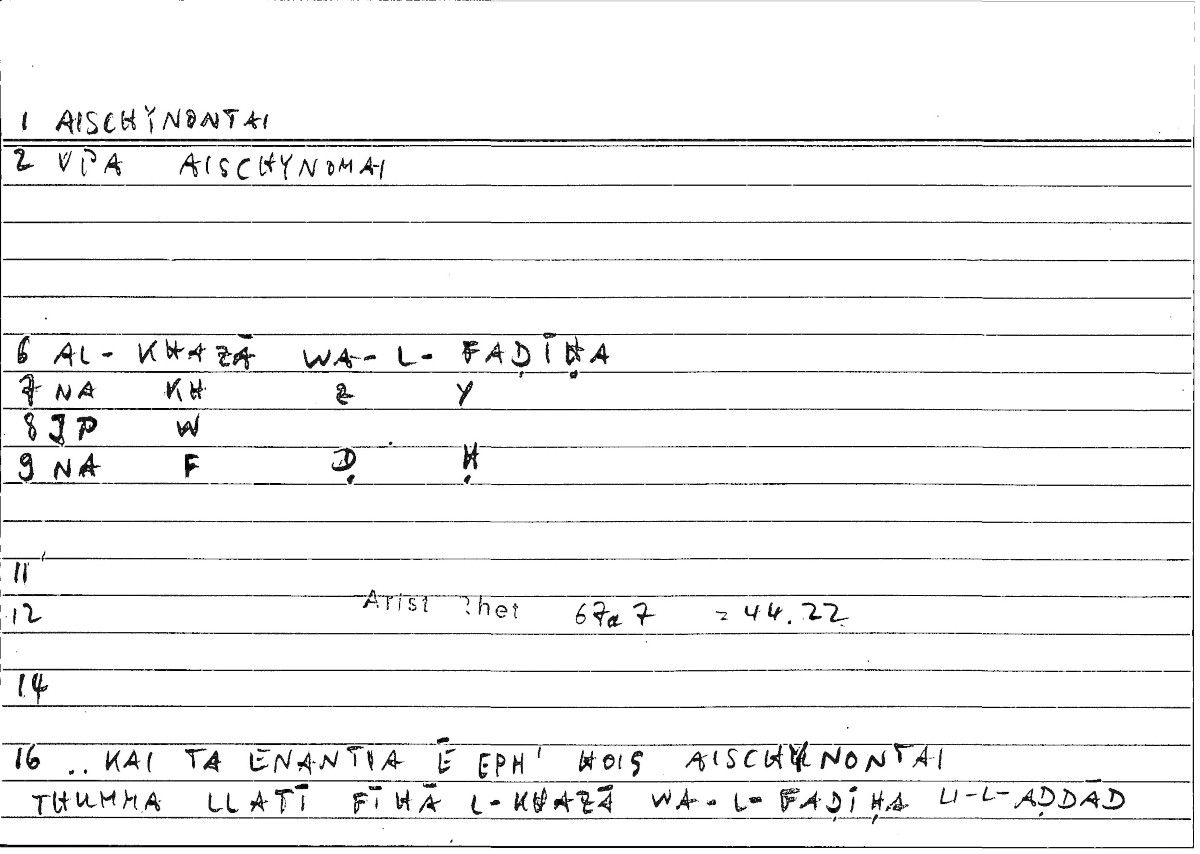 1 AISCHYNONTAI
2 VPA AISCHYNOMAI
6 AL- KHAZĀ WA-L-FAḌĪḤA
7 NA KH Z Y
8 JP W
9 NA F Ḍ Ḥ
11
12 Arist Rhet 67a7 = 44.22
14
16 .. KAI TA ENANTIA Ē EPH' HOIS AISCHYNONTAI
THUMMA LLATĪ FĪHĀ L-KHAZĀ WA-L-FAḌĪḤA LI-L-AḌDĀD